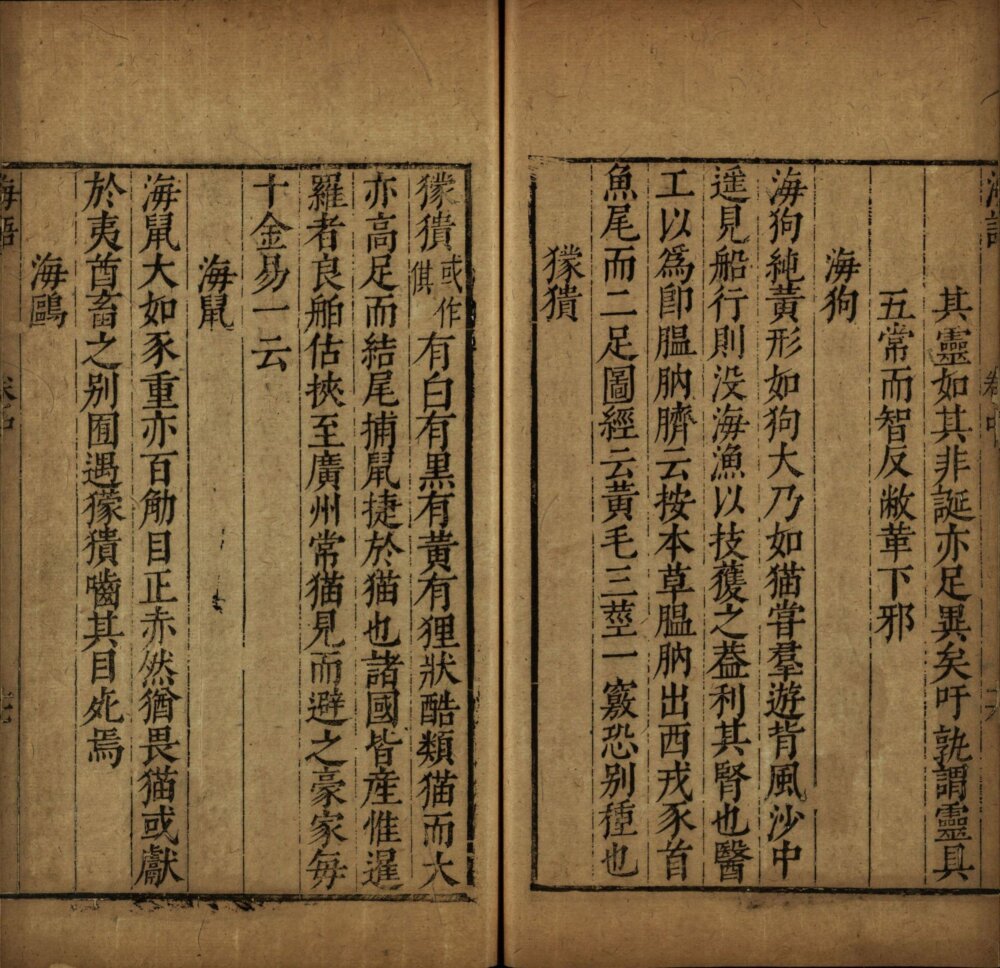 海語
卷中
其靈如其非誕亦足異矣吁孰謂靈具
五常而智反敝葦下邪
海狗
海狗純黃形如狗大乃如猫甞羣遊背風沙中
遥見船行則没海漁以技蒦之葢利其腎也醫
工以爲卽膃肭臍云按本草膃肭出西戎豕首
魚尾而二足圖經云黃毛三莖一竅恐别種也
獴㹟
獴㹟或作㹟有白有黒有黄有狸狀酷類猫而大
亦高足而結尾捕鼠捷於猫也諸國皆産惟暹
羅者良舶估挾至廣州常猫見而避之豪家每
十金易一云
海鼠
海鼠大如豕重亦百觔目正赤然猶畏猫或獻
於夷酋畜之别囿遇獴㹟嚙其目死焉
海鷗
海語
卷中